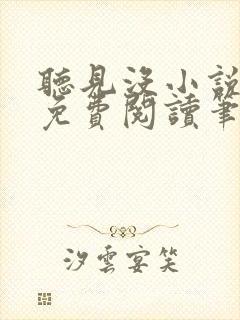 聽見沒小說
免費閱讀筆
汐雲宴笑